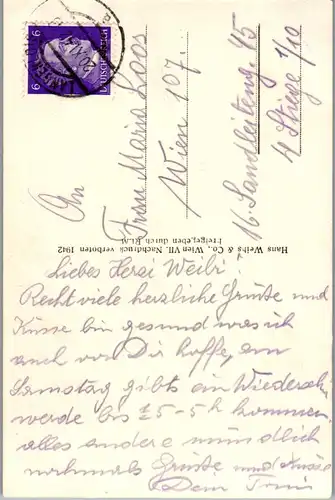 An
Frau Maria Loos
Wien 107.
16. Sandleiteng. 45
4 Stiege 1/10
6 DEUTSCHES REICH 6
Hans Weiß & Co., Wien VII. Nachdruck verboten 1942
Freigegeben durch RLM
Liebes Herzi Weibi!
Recht viele herzliche Grüße und
Küsse bin gesund was ich
auch von Dir hoffe, am
Samstag gibts ein Wiedersehn
werde bis 5-5h kommen
alles andere mündlich
nochmals Grüße und Küsse
Dein Toni